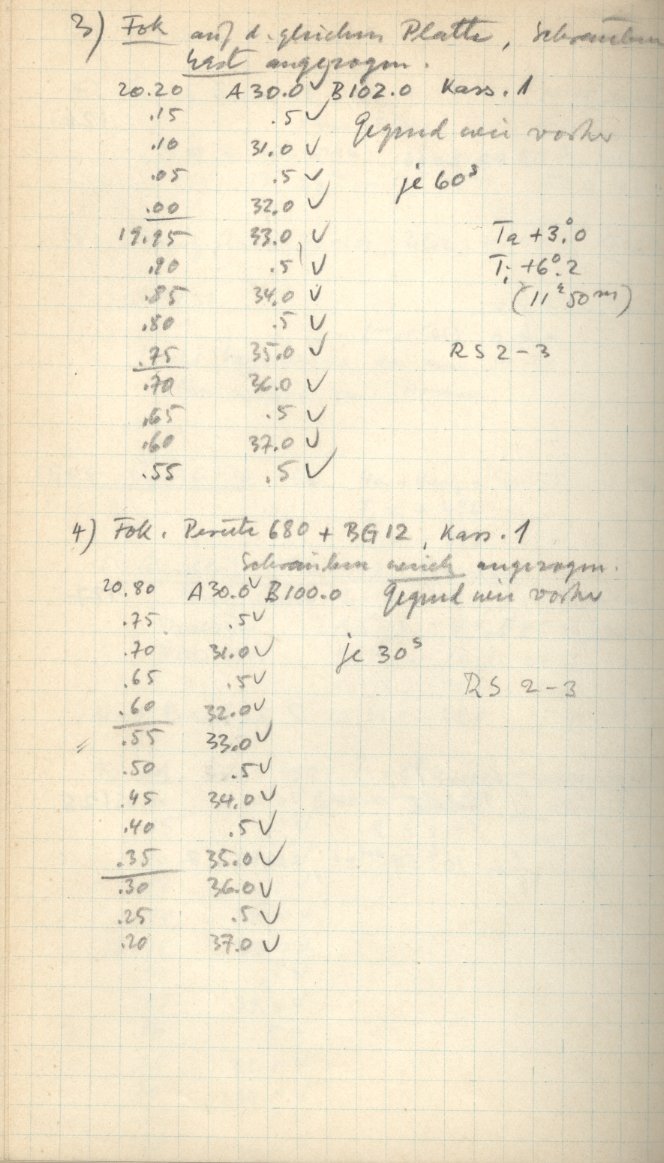 3) Fok auf d. gleichen Platte, Schrauben
fest angezogen.
20.20 A 30.0 ✓ B 102.0 Kass. 1
.15 .5 ✓ Gegend wie vorher
.10 31.0 ✓
.05 .5 ✓ je 60s
.00 32.0 ✓
19.95 33.0 ✓ Ta +3°.0
.90 .5 ✓ Ti +6°.2
.85 34.0 ✓ (11h 50m)
.80 .5 ✓
.75 35.0 ✓ RS 2-3
.70 36.0 ✓
.65 .5 ✓
.60 37.0 ✓
.55 .5 ✓
4) Fok. Perutz 680 + BG 12, Kass. 1
Schrauben weich angezogen.
20.80 A 30.0 ✓ B 100.0 Gegend wie vorher
.75 .5 ✓
.70 31.0 ✓ je 30s
.65 .5 ✓ RS 2-3
.60 32.0 ✓
.55 33.0 ✓
.50 .5 ✓
.45 34.0 ✓
.40 .5 ✓
.35 35.0 ✓
.30 36.0 ✓
.25 .5 ✓
.20 37.0 ✓